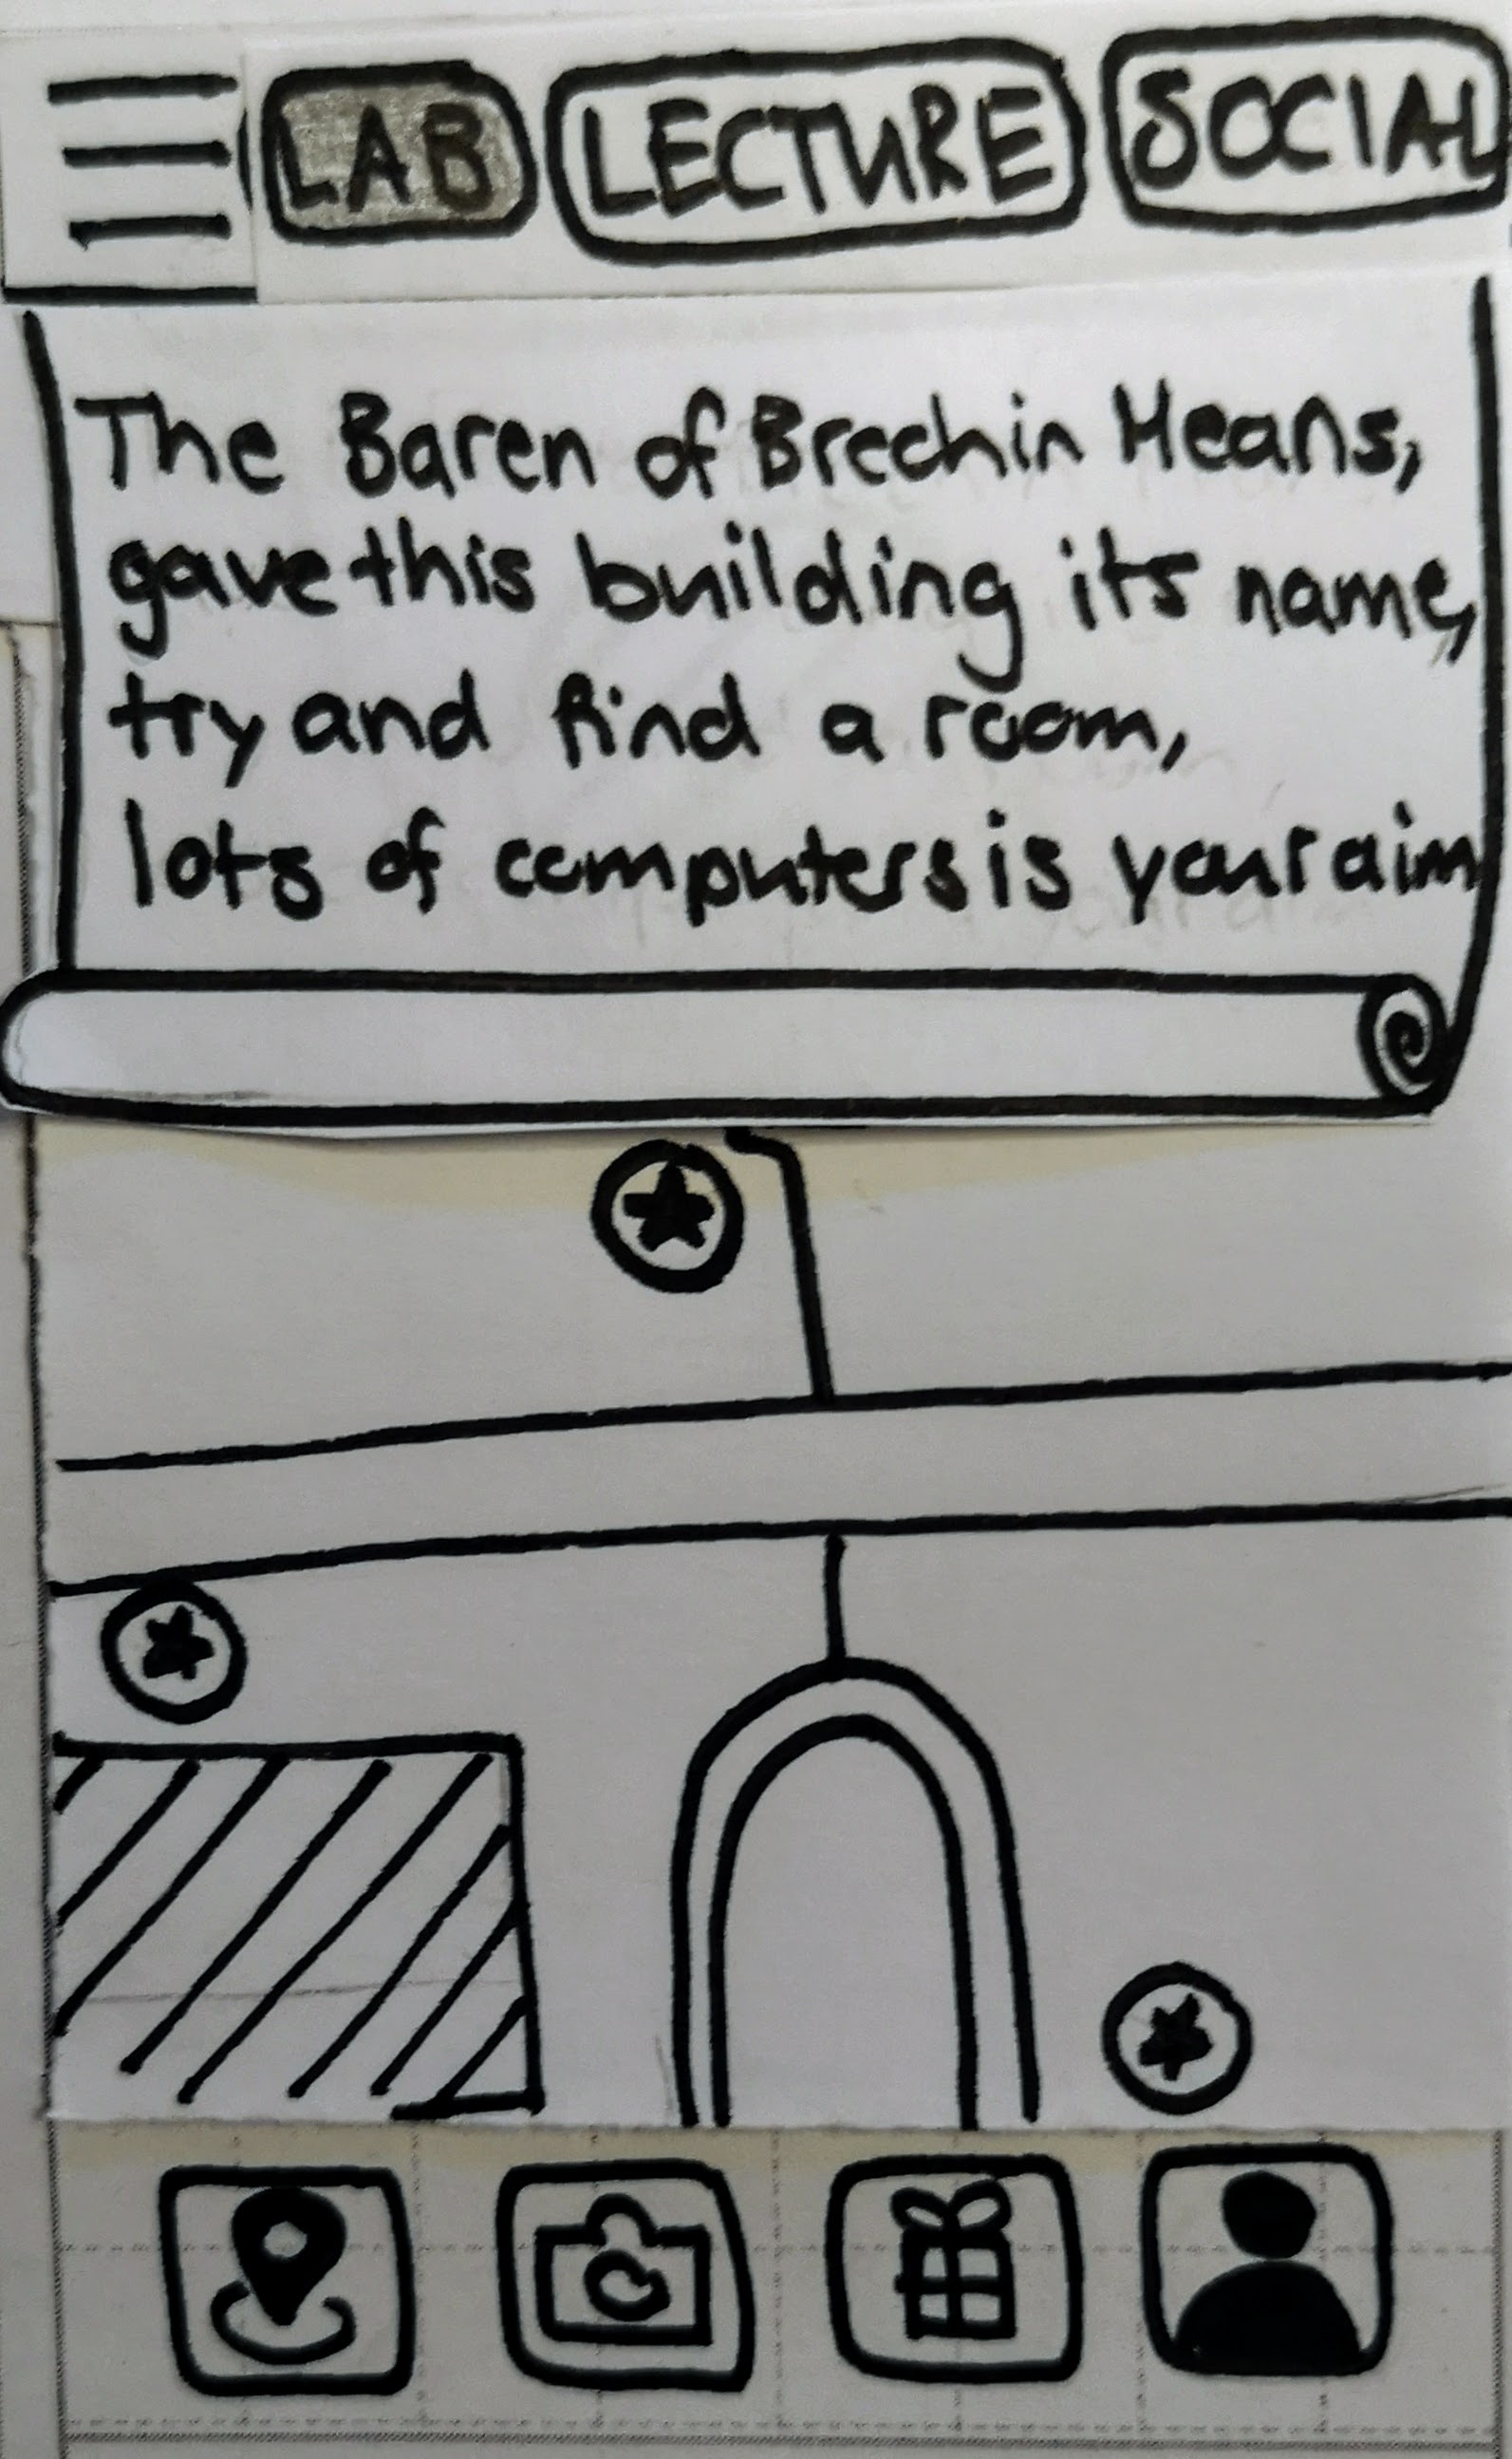 LAB LECTURE SOCIAL
The Baren of Brechin Means,
gave this building its name,
try and find a room,
lots of computers is your aim